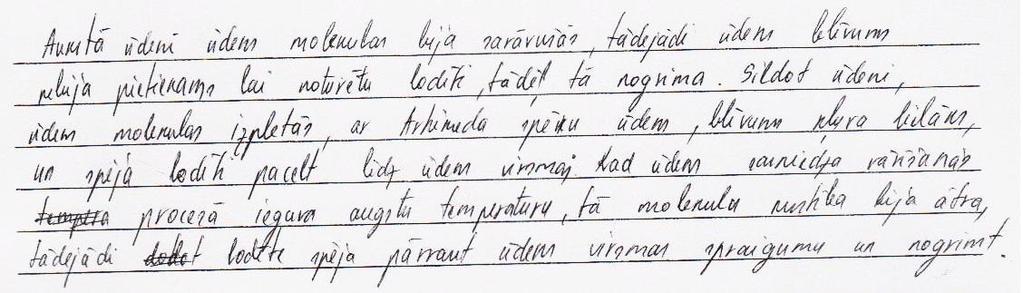 Aukstā ūdenī ūdens molekulas bija sarāvušās, tādejādi ūdens blīvums
nebija pietiekams lai noturētu lodīti, tādēļ tā nogrima. Sildot ūdeni,
ūdens molekulas izpletās, ar Arhimeda spēku ūdens, blīvums kļuva lielāks,
un spēja lodīti pacelt līdz ūdens virsmai. Kad ūdens sasniedza vārīšanās
procesā ieguva augstu temperatūru, tā molekulu kustība bija ātra,
tādejādi lodīte spēja pārraut ūdens virsmas spraigumu un nogrimt.